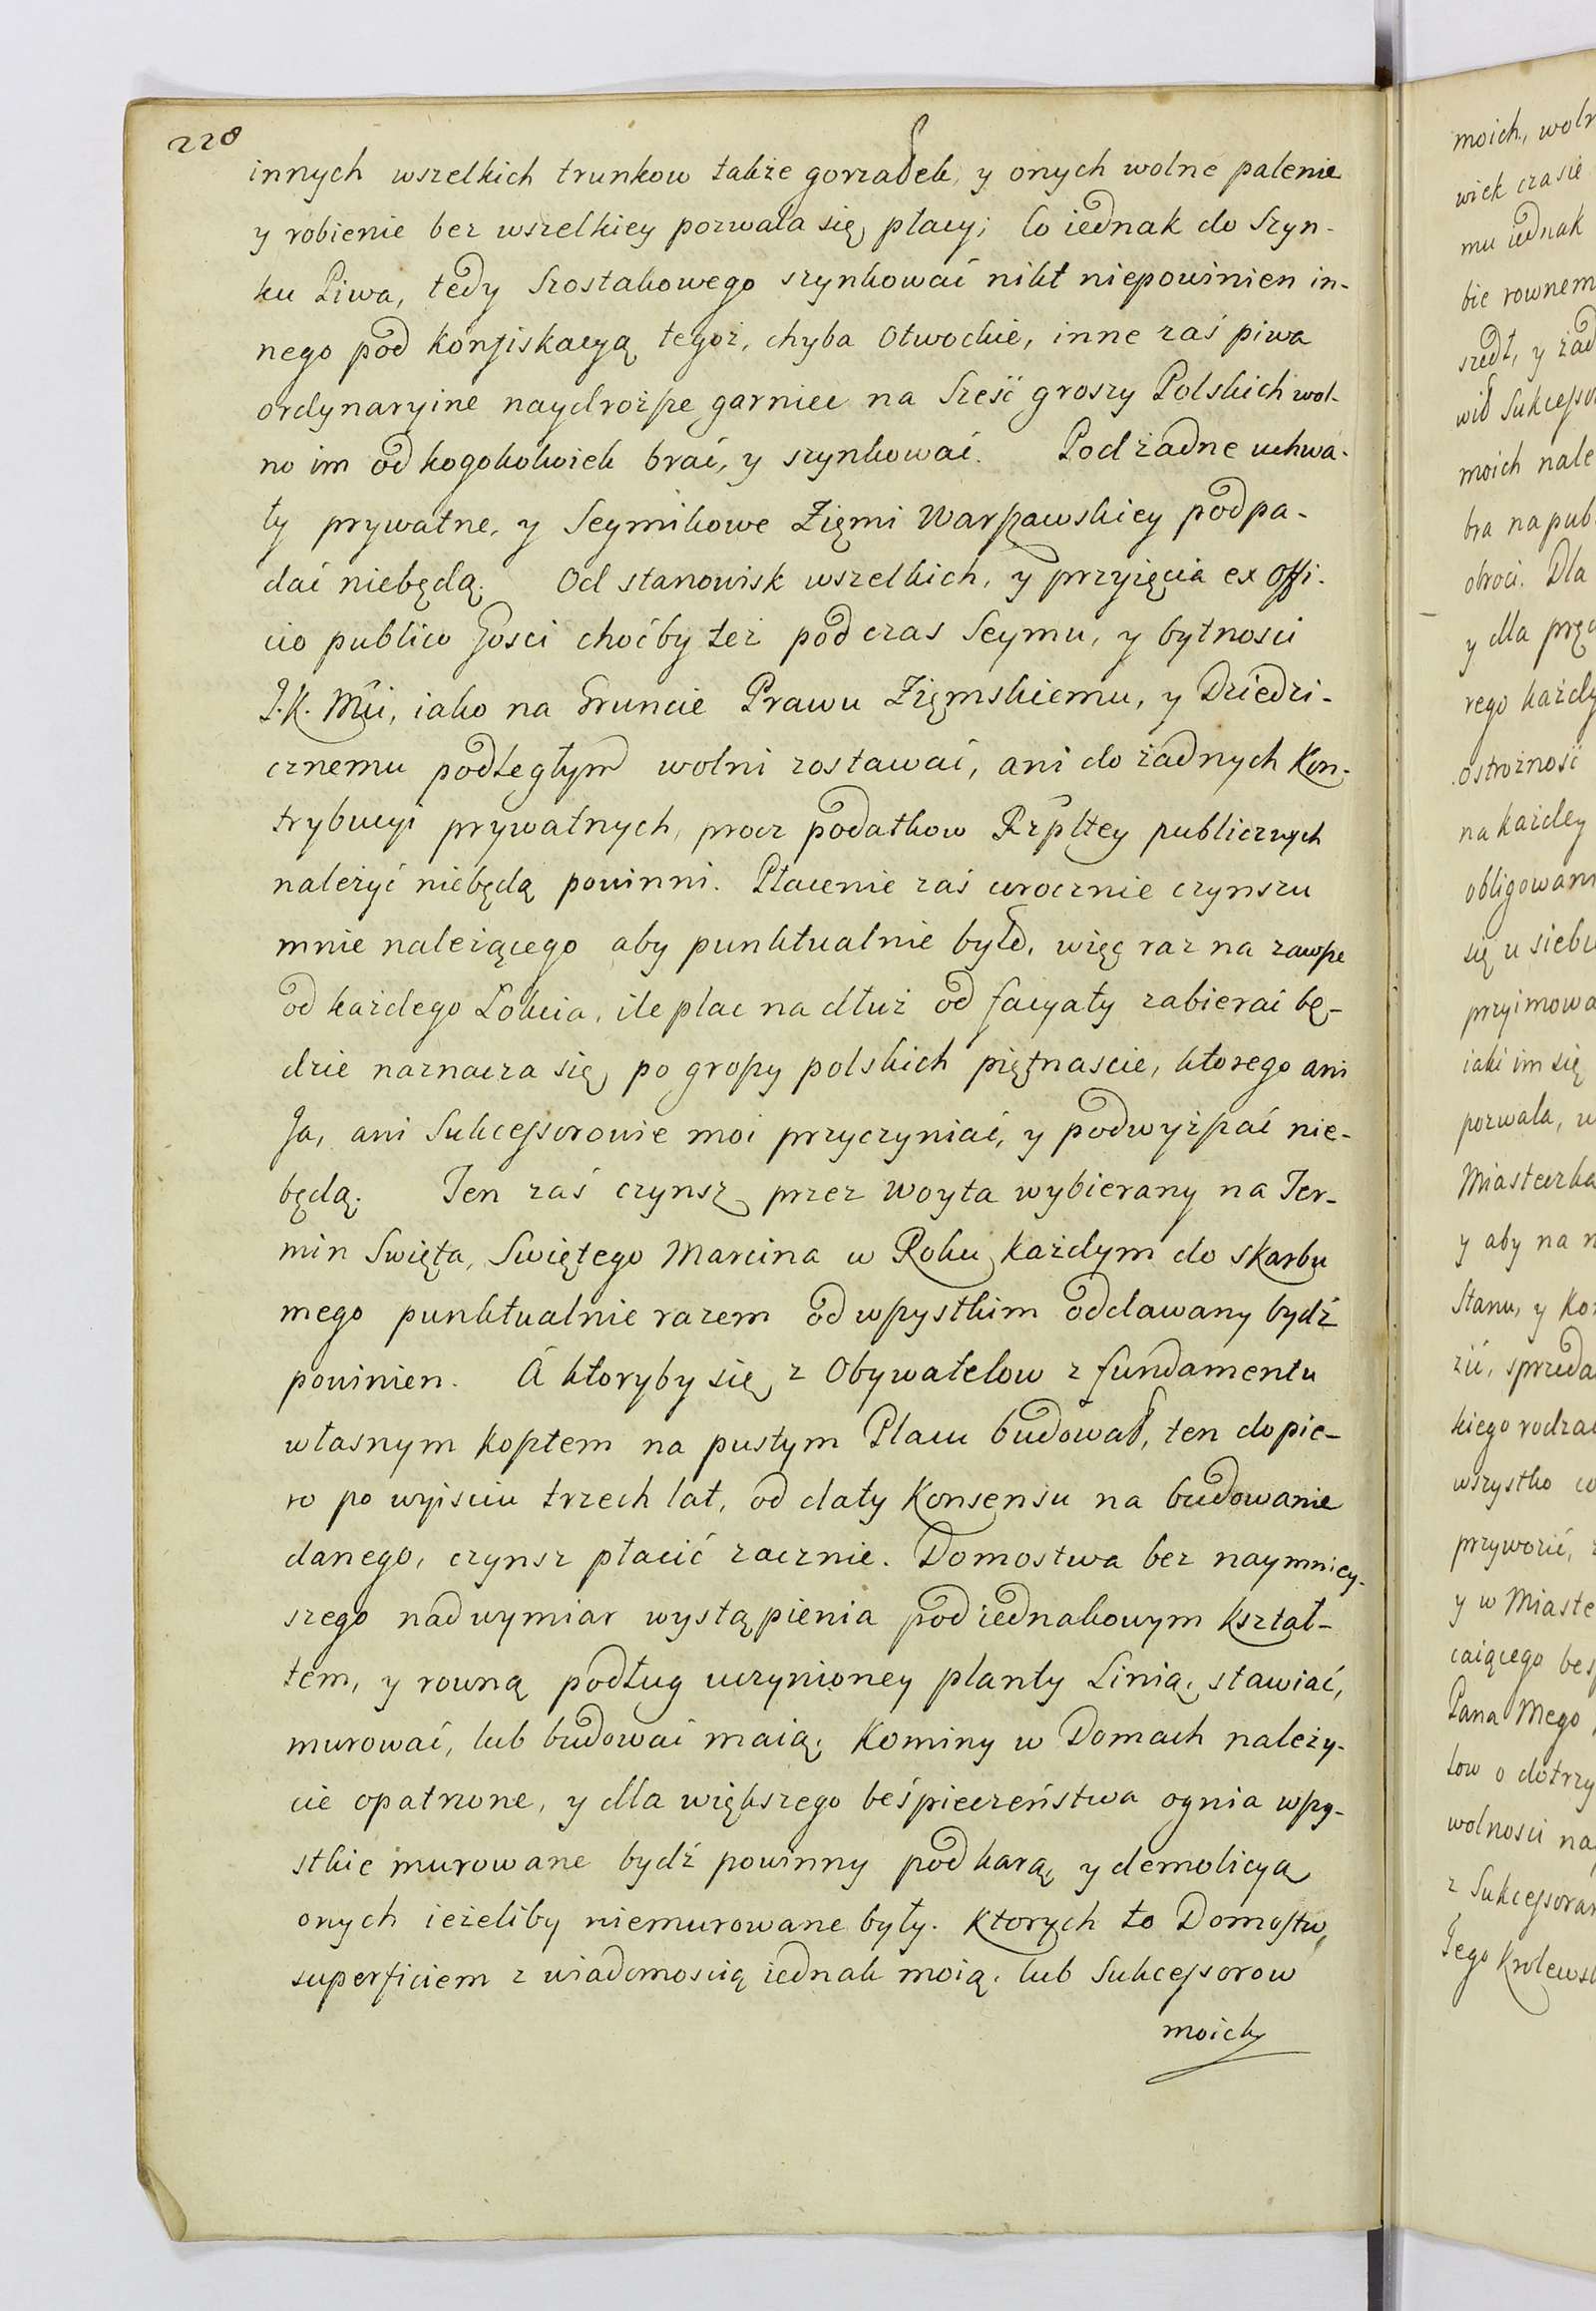 228
innych wszelkich trunkow także gorzałek, y onych wolne palenie
y robienie bez wszelkiey pozwala się płacy; Co iednak do Szyn-
ku Piwa, tedy Szostakowego szynkować nikt niepowinien in-
nego pod konfiskacyą tegoż, chyba Otwockie, inne zaś piwa
ordynaryine naydroższe garniec na Sześć groszy Polskich wol-
no im od kogokolwiek brać, y szynkować. Pod żadne uchwa-
ły prywatne, y Seymikowe Zięmi Warszawskiey podpa-
dać niebędą. Od stanowisk wszelkich, y przyięcia ex offi-
cio publico Gosci choćby też podczas Seymu, y bytnosci
J.K. Mci, iako na Gruncie Prawu Zięmskiemu, y Dziedzi-
cznemu podległym wolni zostawać, ani do żadnych Kon-
trybucyi prywatnych, procz podatkow Rzpltey publicznych
należyć niebędą powinni. Płacenie zaś urocznie czynszu
mnie należącego aby punktualnie było, więc raz na zawsze
od każdego Łokcia, ile plac na dłuż od facyaty zabierać bę-
dzie naznacza się, po groszy polskich piętnascie, ktorego ani
Ja, ani Sukcessorowie moi przyczyniać, y podwyższać nie-
będą. Ten zaś czynsz przez Woyta wybierany na Ter-
min Swięta, Swiętego Marcina w Roku każdym do skarbu
mego punktualnie razem od wszystkim oddawany bydź
powinien. A ktoryby się z Obywatelow z fundamentu
własnym kosztem na pustym Placu budował, ten dopie-
ro po wyisciu trzech lat, od daty Konsensu na budowanie
danego, czynsz płacić zacznie. Domostwa bez naymniey-
szego nad wymiar wystąpienia pod iednakowym kształ-
tem, y rowną podług uczynioney planty Linią, stawiać,
murować, lub budować maią. Kominy w Domach należy-
cie opatrzone, y dla większego beśpieczeństwa ognia wszy-
stkie murowane bydź powinny pod karą, y demolicyą
onych ieżeliby niemurowane były. Ktorych to Domostw,
superficiem z wiadomoscią iednak moią, lub Sukcessorow
moich
moich, woln
wiek czasie
mu iednak
bie rownem
szedł, y żad
wił Sukcesso
moich nale
bra na pub
obroci. Dla
y dla pręd
rego każdy
ostrożność
na każdey
obligowani
się u siebie
przyimowa
iaki im się
pozwala, w
Miasteczka
y aby na n
Stanu, y Ko
zić, sprzeda
kiego rodzai
wszystko co
przywozić,
y w Miaste
caiącego bes
Pana Mego
low o dotrzy
wolnosci na
z Sukcessoram
Jego Krolewsk